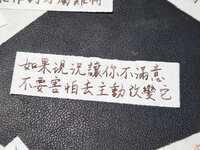 如果況況讓你不滿意
不要害怕去主動改變它